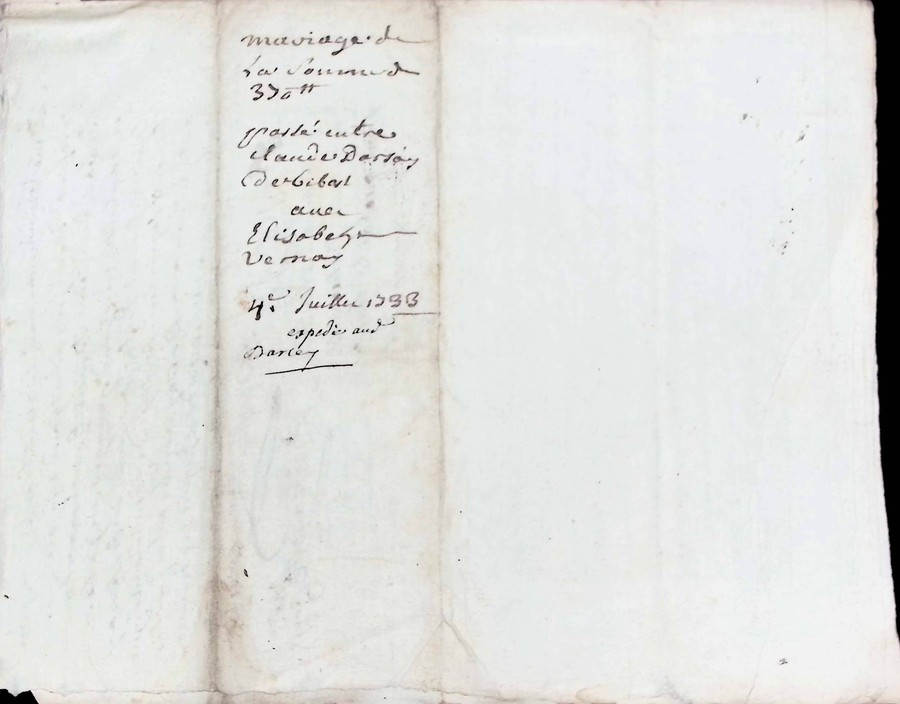 mariage de
La Somme de
330tt
passé entre
claude Dorsay
De
avec
Elisabeth
Vernay
4e. Juillet 1733
expedié aud
Darcey